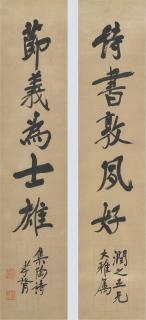 詩書敦夙好
潤之五兄
大雅屬
節義為士雄
集陶詩